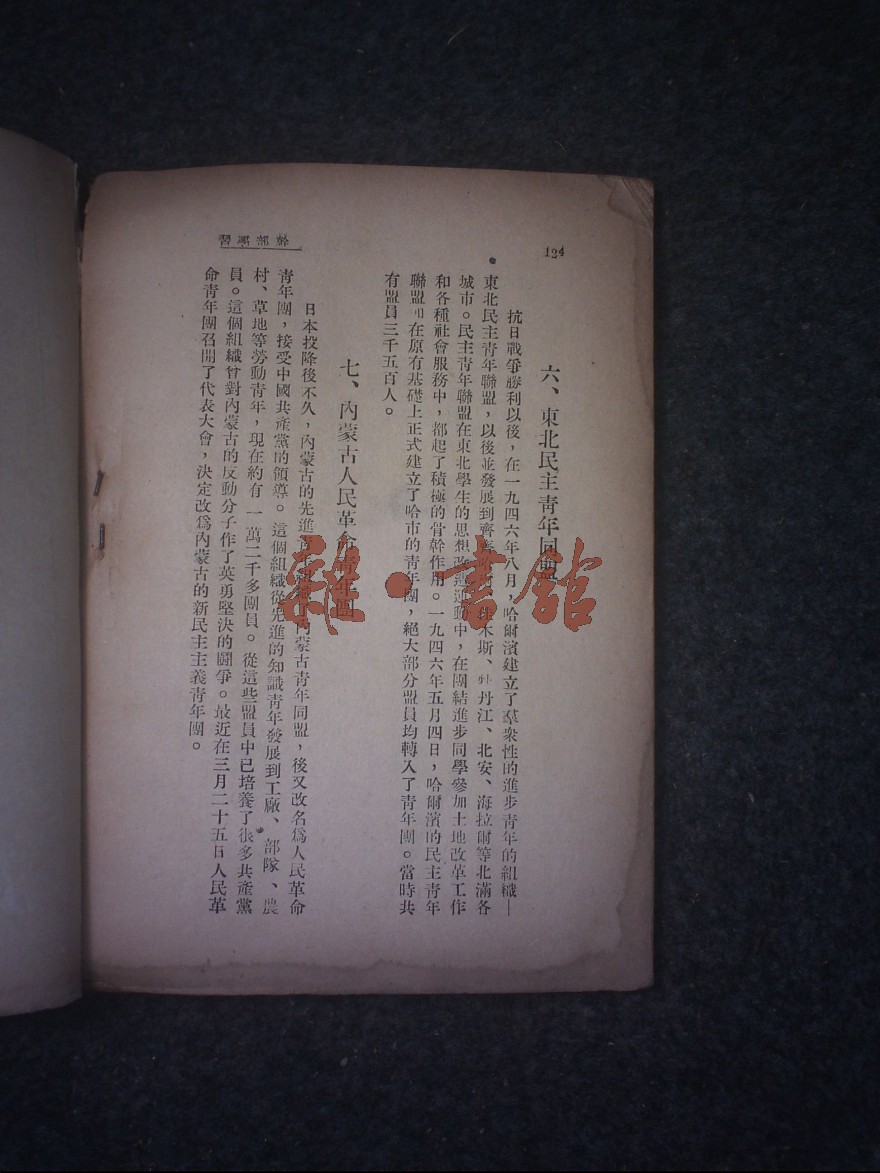 124
幹部學習
六、東北民主青年同盟
抗日戰爭勝利以後，在一九四六年八月，哈爾濱建立了羣衆性的進步青年的組織—
東北民主青年聯盟，以後並發展到齊齊哈爾、佳木斯、牡丹江、北安、海拉爾等北滿各
城市。民主青年聯盟在東北學生的思想改造運動中，在團結進步同學參加土地改革工作
和各種社會服務中，都起了積極的骨幹作用。一九四六年五月四日，哈爾濱的民主青年
聯盟在原有基礎上正式建立了哈市的青年團，絕大部分盟員均轉入了青年團。當時共
有盟員三千五百人。
七、內蒙古人民革命青年團
日本投降後不久，內蒙古的先進青年組織了內蒙古青年同盟，後又改名爲人民革命
青年團，接受中國共產黨的領導。這個組織從先進的知識青年發展到工廠、部隊、農
村、草地等勞動青年，現在約有一萬二千多團員。從這些盟員中已培養了很多共產黨
員。這個組織曾對內蒙古的反動分子作了英勇堅決的鬪爭。最近在三月二十五日人民革
命青年團召開了代表大會，決定改爲內蒙古的新民主主義青年團。
雜·書館